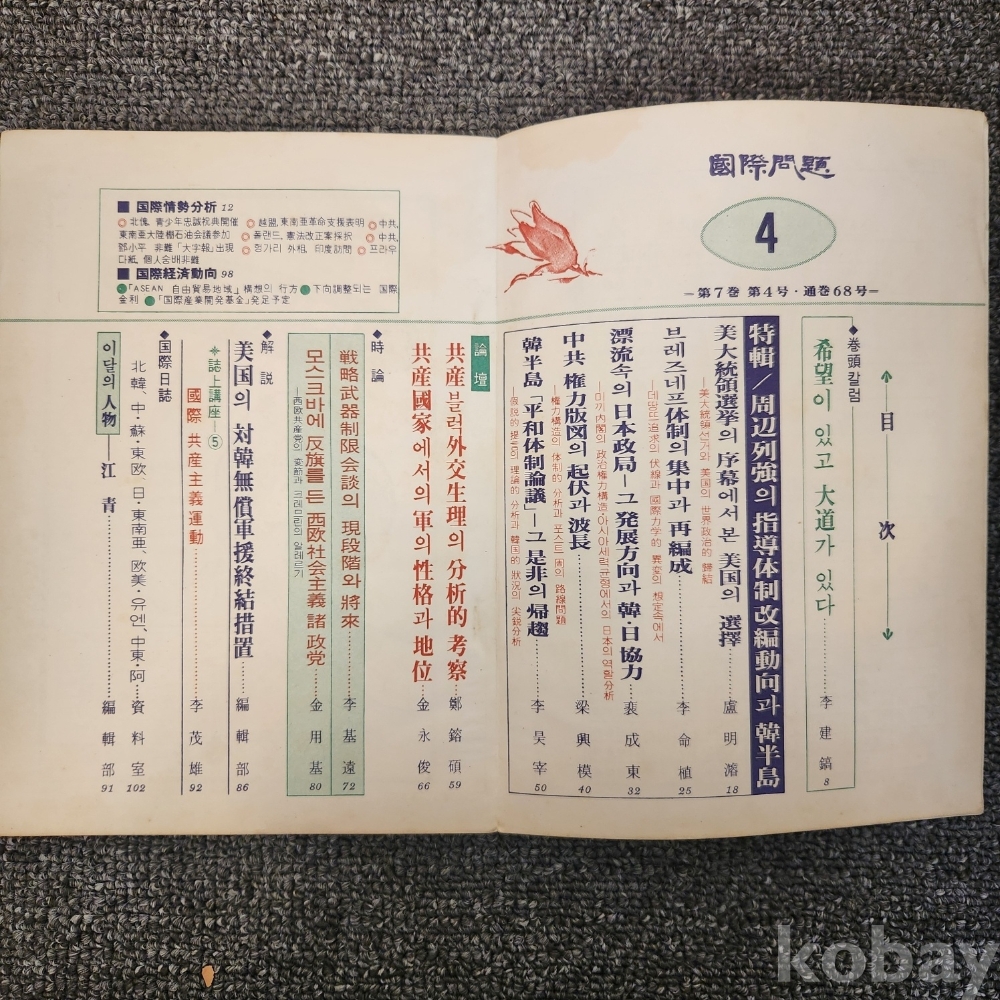 國際問題
4
─第7巻 第4号·通巻68号─
目次
◆巻頭칼럼
希望이 있고 大道가 있다……李建鎬 8
特輯／周辺列強의 指導体制改編動向과 韓半島
美大統領選挙의 序幕에서 본 美国의 選擇……盧明濬 18
─美大統領선거와 美国의 世界政治的 歸結
브레즈네프体制의 集中과 再編成……李命植 25
─데땅뜨追求의 伏線과 國際力学的 異変의 想定속에서
漂流속의 日本政局─그 発展方向과 韓·日協力……裵成東 32
─미끼内閣의 政治権力構造·아시아세력균형에서의 日本의 역할分析
中共 権力版図의 起伏과 波長……梁興模 40
─権力構造의 体制的 分析과 포스트周의 路線問題
韓半島「平和体制論議」─그 是非의 帰趨……李昊宰 50
─仮説的 提案의 理論的 分析과 韓国的 狀況의 尖鋭分析
論壇
共産블럭外交生理의 分析的 考察……鄭鎔碩 59
共産國家에서의 軍의 性格과 地位……金永俊 66
◆時論
戦略武器制限会談의 現段階와 將來……李基遠 72
모스크바에 反旗를 든 西欧社会主義 諸 政党……金用基 80
─西欧共産党의 変節과 크레므린의 알레르기
◆解説
美国의 対韓無償軍援終結措置……編輯部 86
誌上講座─⑤
國際 共産主義運動……李茂雄 92
◆国際日誌
北韓、中·蘇·東欧、日·東南亜、欧美·유엔、中東·阿……資料室 102
이달의 人物──江青……編輯部 91
■ 国際情勢分析 12
◎ 北傀, 青少年忠誠祝典開催 ◎ 越盟, 東南亜革命支援表明 ◎ 中共,
東南亜大陸棚石油会議参加 ◎ 폴랜드, 憲法改正案採択 ◎ 中共,
鄧小平 非難「大字報」出現 ◎ 헝가리 外相, 印度訪問 ◎ 프라우
다紙, 個人合唱非難
■ 国際経済動向 98
●「ASEAN 自由貿易地域」構想의 行方 ● 下向調整되는 国際
金利 ●「国際産業開発基金」発足予定
kobay